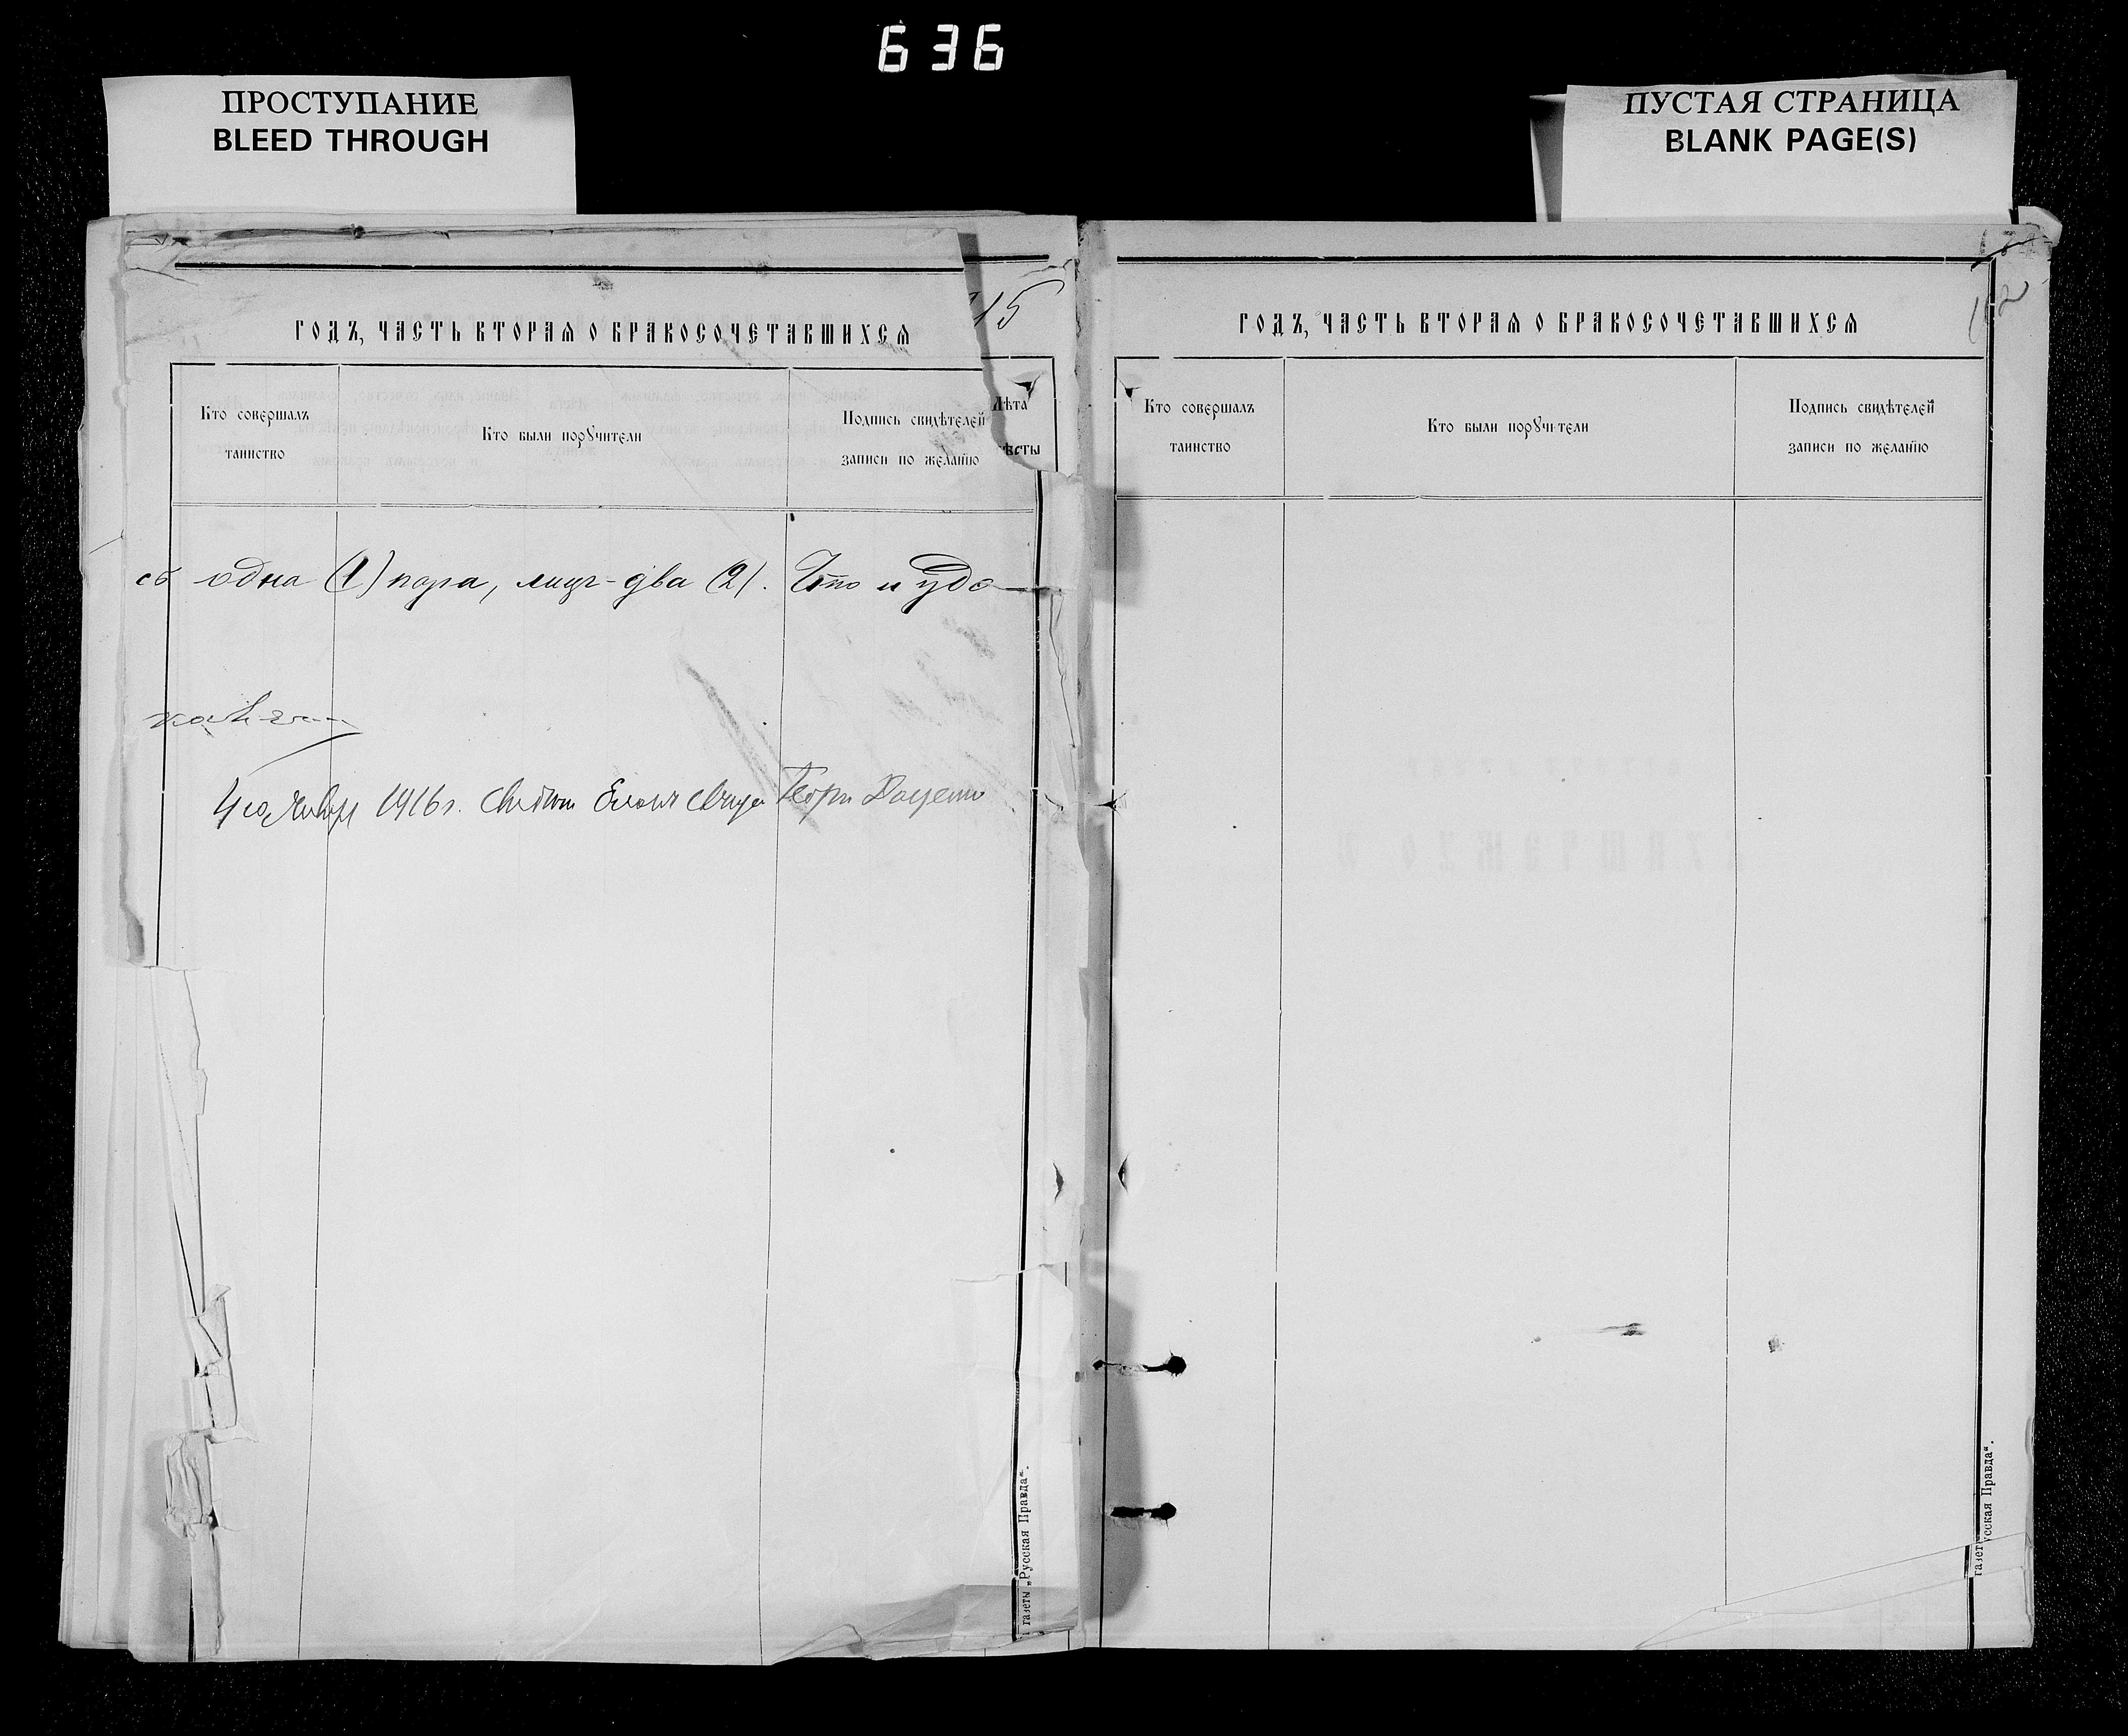 636
ПРОСТУПАНИЕ
BLEED THROUGH
ПУСТАЯ СТРАНИЦА
BLANK PAGE(S)
15
ГОДЪ, ЧАСТЬ ВТОРАѦ О БРАКОСОЧЕТАВШИХСѦ
Кто совершалъ
таинство
Кто были порꙋчители
Подпись свидѣтелей
записи по желанїю
Лѣта
ѣсты
одна (1) пара, лицъ - два (2). Что и удо
1916 г.
газеты „Русская Правда“.
162
ГОДЪ, ЧАСТЬ ВТОРАѦ О БРАКОСОЧЕТАВШИХСѦ
Кто совершалъ
таинство
Кто были порꙋчители
Подпись свидѣтелей
записи по желанїю
газет усская Правда“.